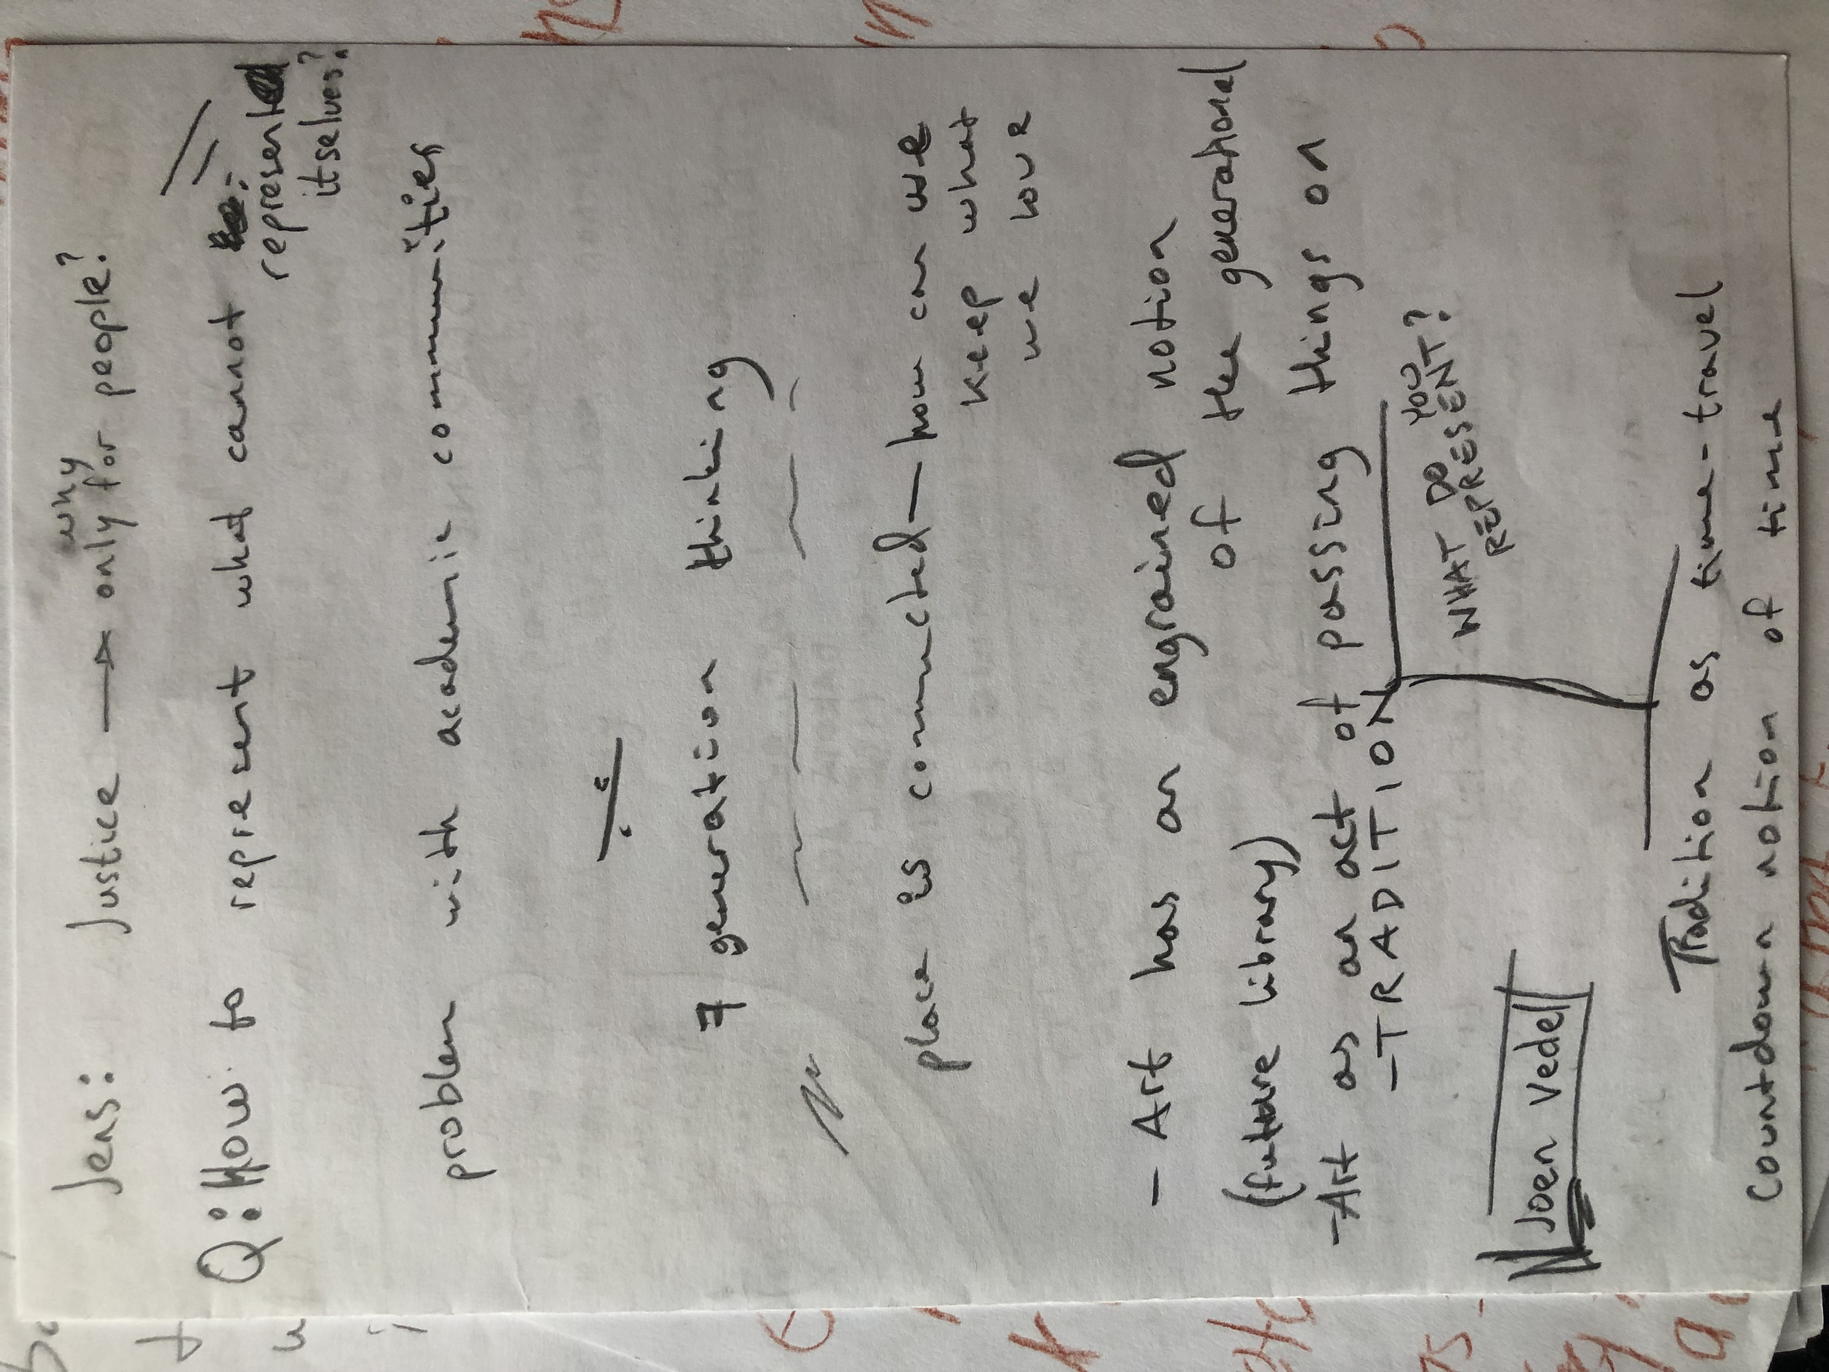 Jens: Justice → why only for people?
Q: How to represent what cannot represent itselves?
problem with academic communities
7 generation thinking
place is connected — how can we
keep what
we love
- Art has an engrained notion
of the generational
(future library)
- Art as an act of passing things on
- TRADITION
WHAT DO YOU
REPRESENT?
Joen Vedel
Tradition as time-travel
countdown notion of time